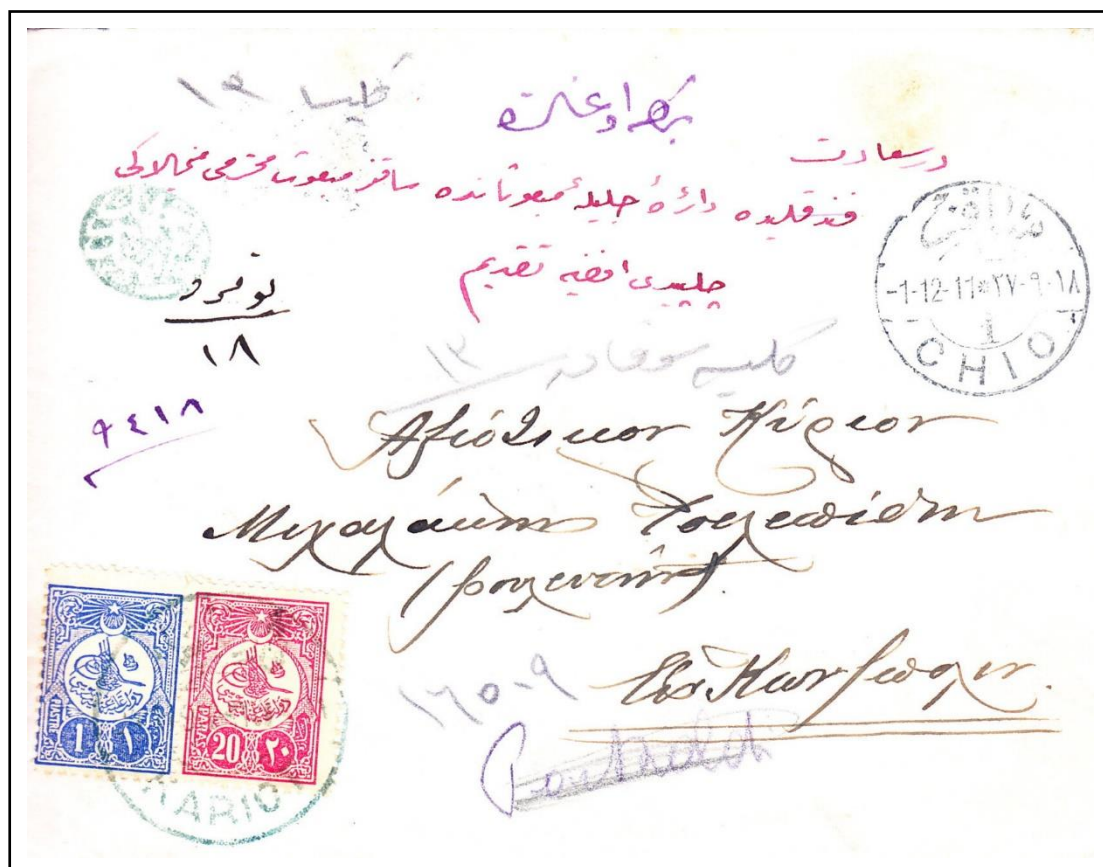 كليسا ١٣
بك اوغلنده
درسعادت
فندقليده دائرهٔ جليلهٔ مبعوثانده ساقز مبعوث محترمى ميخالاكى
چلبيدى افنديه تقديم
نومرو
١٨
-1-12-11*٢٧-٩-١٨
1
CHIO
١٣
٩٤١٨
Ἀξιότιμον Κύριον
Μιχαλάκην Τσελεπίδην
(βουλευτήν)
Εἰς Κων/πολιν.
١٦٥٠٩
1 PIASTRE ١
20 PARAS ٢٠
KARIO